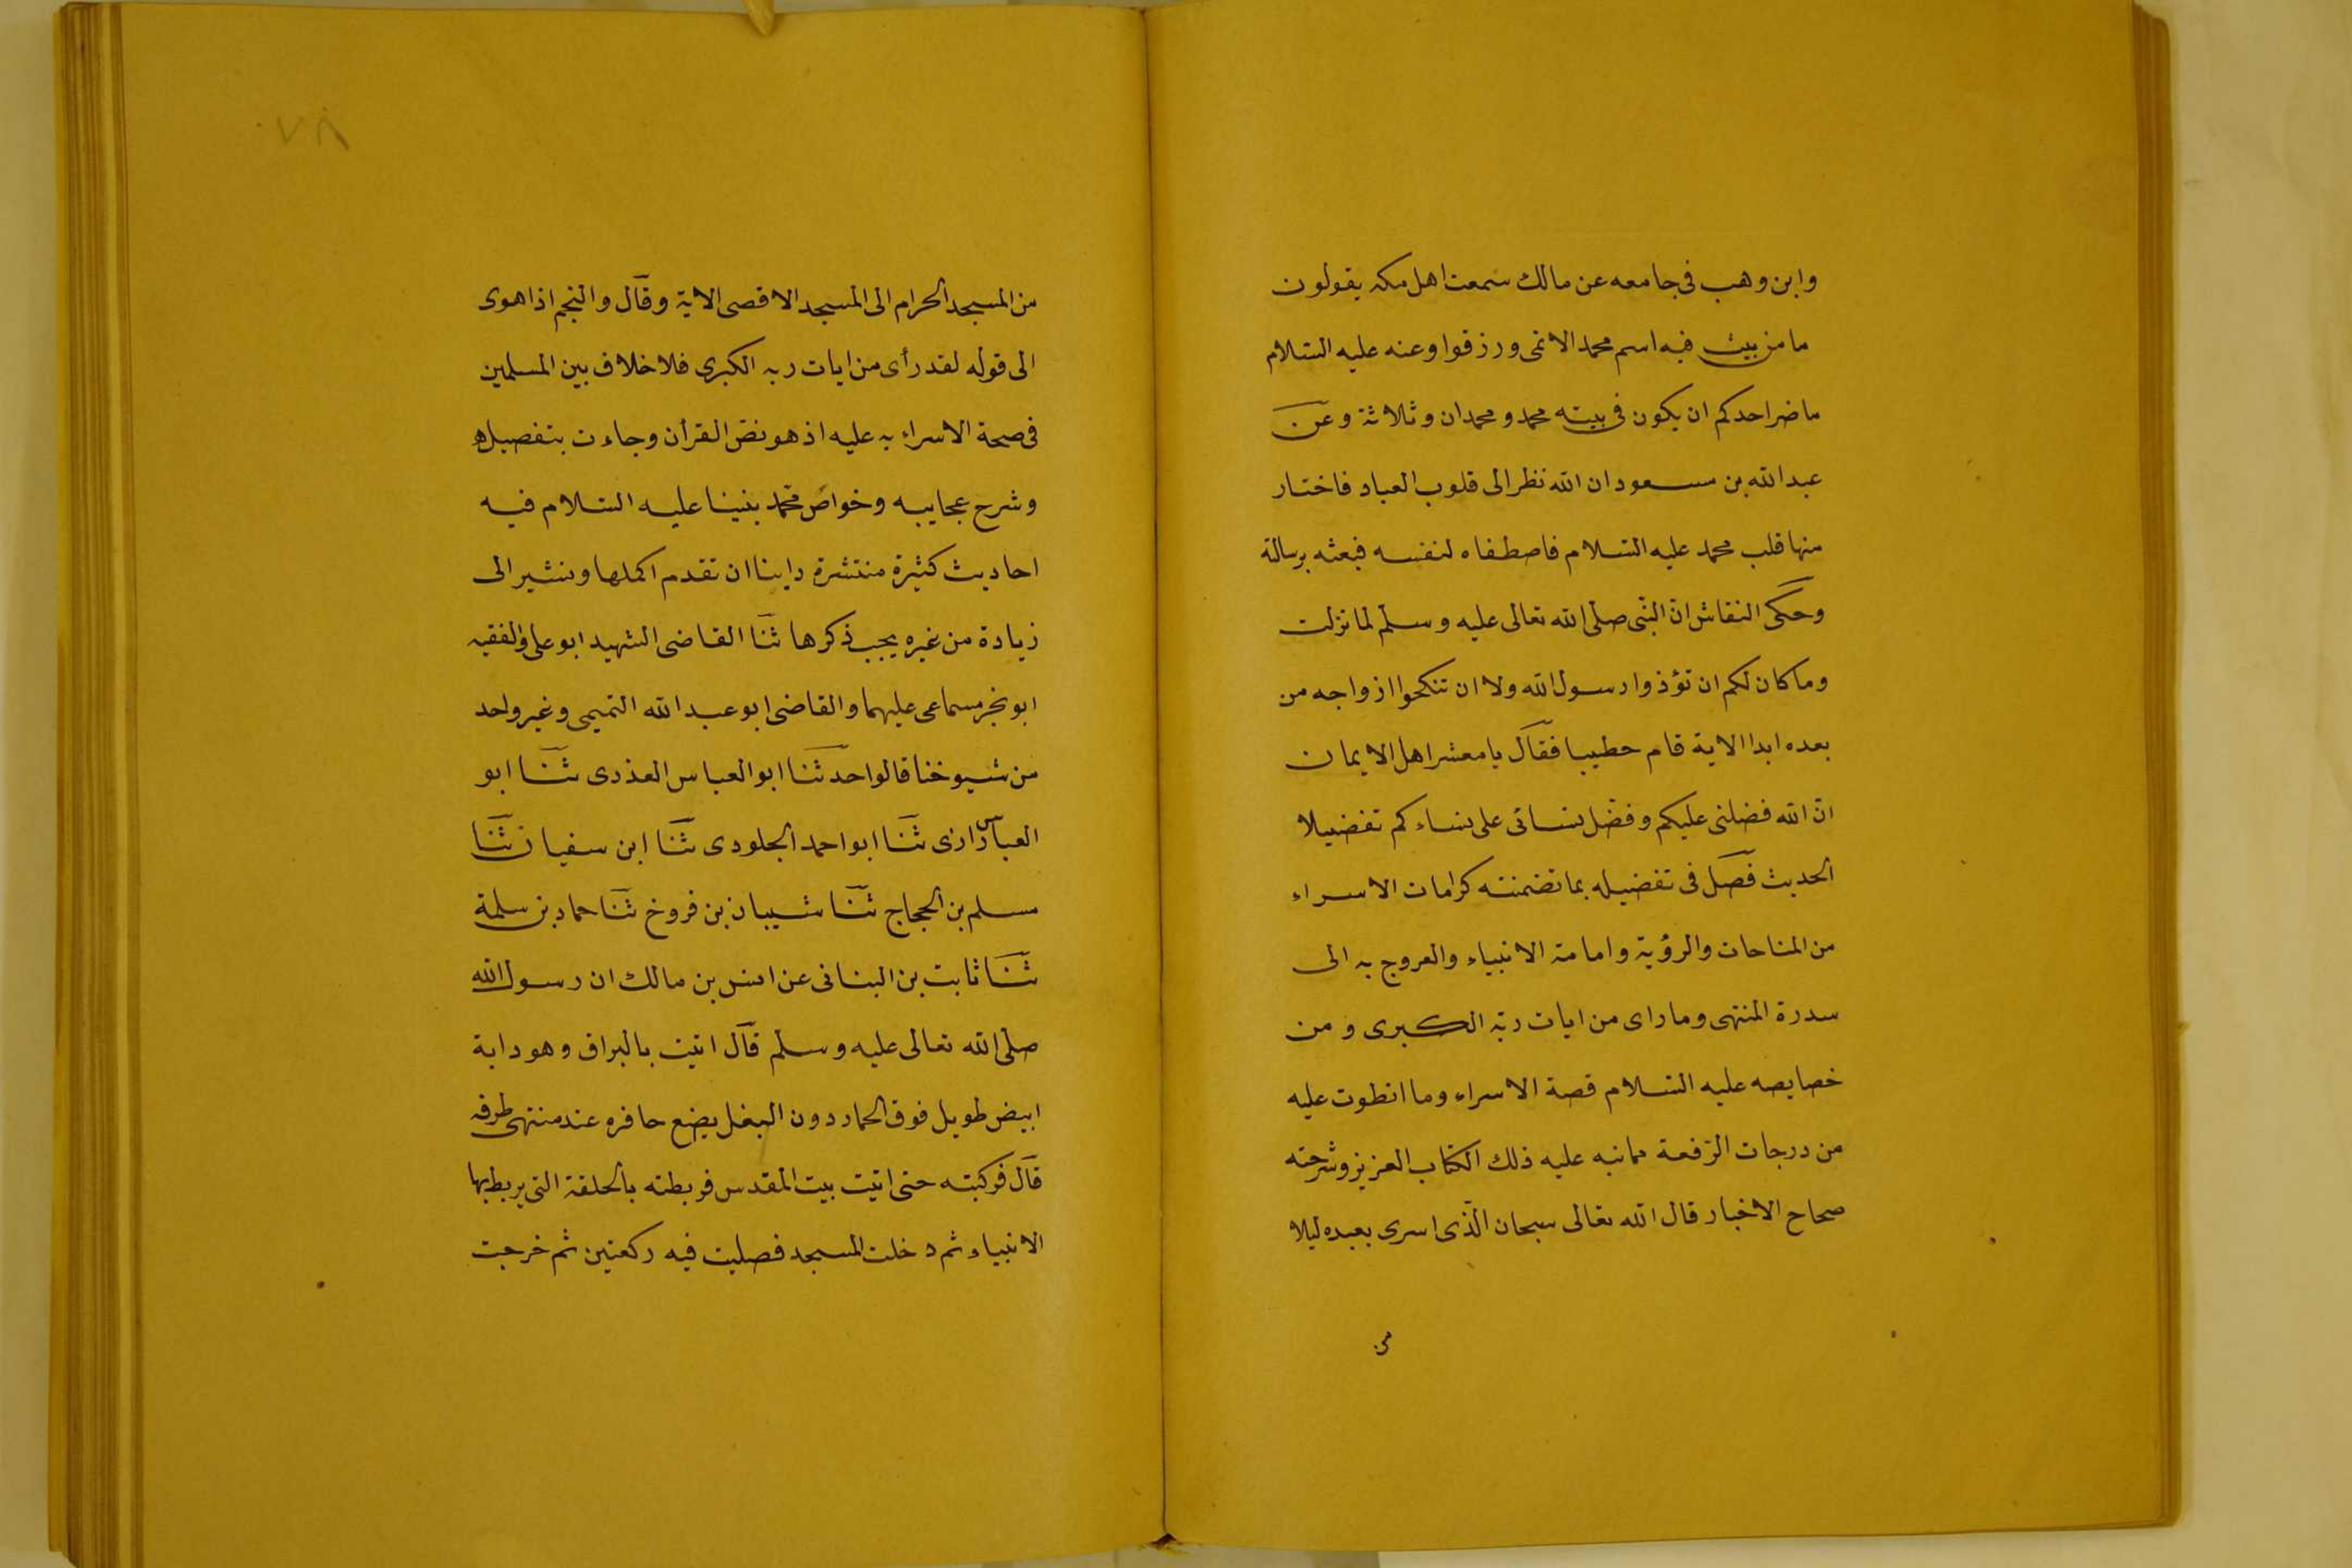 وابن وهب فى جامعه عن مالك سمعت اهل مكه يقولون
ما من بيت فيه اسم محمد الا نمى ورزقوا وعنه عليه السلام
ما ضر احدكم ان يكون فى بيته محمد ومحمدان وثلاثة وعن
عبد الله بن مسعود ان الله نظر الى قلوب العباد فاختار
منها قلب محمد عليه السلام فاصطفاه لنفسه فبعثه برسالة
وحكى النقاش ان النبى صلى الله تعالى عليه وسلم لما نزلت
وما كان لكم ان تؤذوا رسول الله ولا ان تنكحوا ازواجه من
بعده ابدا الاية قام حطيبا فقال يا معشر اهل الايمان
ان الله فضلنى عليكم وفضل نسائى على نساءكم تفضيلا
الحديث فصل فى تفضيله بما تضمنته كرامات الاسراء
من المناحات والرؤية وامامة الانبياء والعروج به الى
سدرة المنتهى وما راى من ايات ربه الكبرى ومن
خصايصه عليه السلام قصة الاسراء وما انطوت عليه
من درجات الرفعة مما نبه عليه ذلك الكتاب العزيز وشرحته
صحاح الاخبار قال الله تعالى سبحان الذى اسرى بعبده ليلا
من
٧٨
من المسجد الحرام الى المسجد الاقصى الاية وقال والنجم اذا هوى
الى قوله لقد رأى من ايات ربه الكبرى فلا خلاف بين المسلمين
فى صحة الاسراء به عليه اذ هو نص القرأن وجاءت بتفصيله
وشرح عجايبه وخواص محمد بنينا عليه السلام فيه
احاديث كثيرة منتشرة راينا ان نقدم اكملها ونشير الى
زيادة من غيره يجب ذكرها ثنا القاضى الشهيد ابو على والفقيه
ابو بحر سماعى عليهما والقاضى ابو عبد الله التميمى وغير واحد
من شيوخنا قالوا حدثنا ابو العباس العذرى ثنا ابو
العباس رازى ثنا ابو احمد الجلودى ثنا ابن سفيان ثنا
مسلم بن الحجاج ثنا شيبان بن فروخ ثنا حماد بن سلمة
ثنا ثابت بن البنانى عن انس بن مالك ان رسول الله
صلى الله تعالى عليه وسلم قال اتيت بالبراق وهو دابة
ابيض طويل فوق الحمار دون البغل يضع حافره عند منتهى طرفه
قال فركبته حتى اتيت بيت المقدس فربطته بالحلقة التى يربط بها
الانبياء ثم دخلت المسجد فصليت فيه ركعتين ثم خرجت